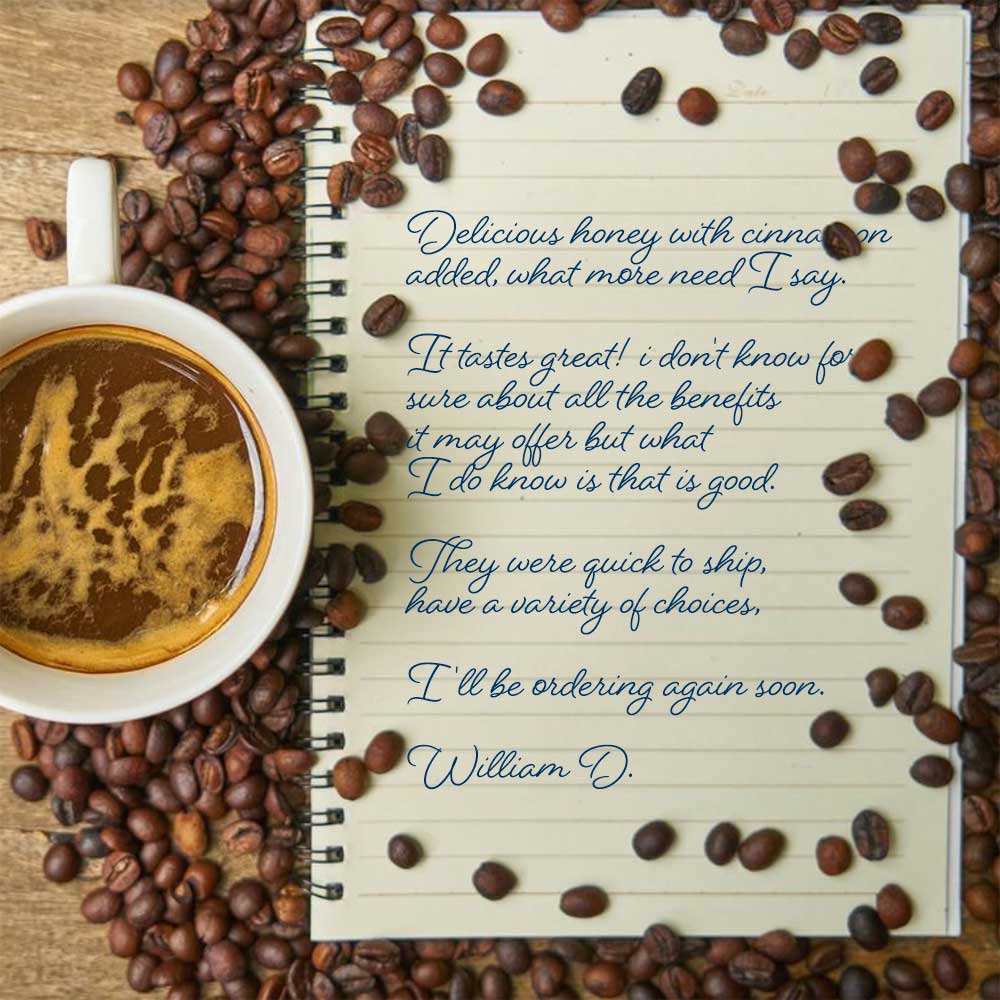 Date
Delicious honey with cinnamon
added, what more need I say.
It tastes great! i don't know for
sure about all the benefits
it may offer but what
I do know is that is good.
They were quick to ship,
have a variety of choices,
I'll be ordering again soon.
William D.